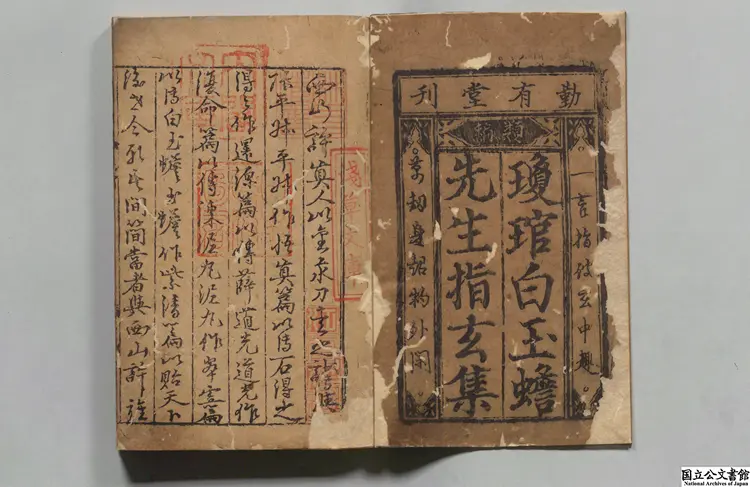 勤有堂刊
一言指玄中趣
瓊琯白玉蟾
先生指玄集
劫身物外閑
西山許真人以金汞刀圭
張平叔平叔作悟真篇以傳石得之
得之作還源篇以傳薛道光道光作
復命篇以傳陳泥丸泥丸作翠虛篇
以傳白玉蟾玉蟾作紫清篇以貽天下
後世今簡當者與西山許旌
国立公文書館
National Archives of Japan